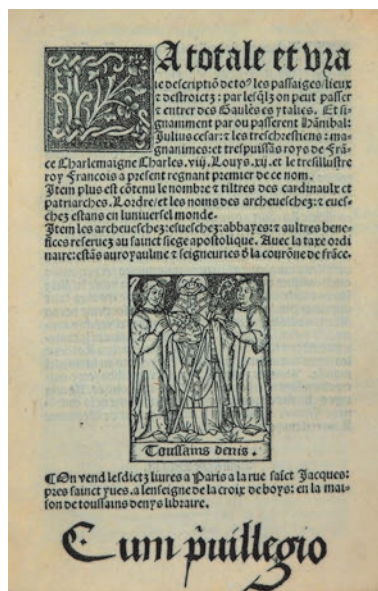 LA totale et vra
ie descriptiõ de toꝰ les passaiges/ lieux
⁊ destroictz : par les q̃lz on peut passer
⁊ entrer des Gaules es ytalies. Et si-
gnamment par ou passerent Hãnibal:
Julius cesar: ⁊ les treschrestiens : ma-
gnanimes: et trespuissãs roys de frã-
ce Charlemaigne Charles. viij. Louys. xij. et le tresillustre
roy Francois a present regnant premier de ce nom.
Item plus est cõtenu le nombre ⁊ tiltres des cardinaulx et
patriarches. Lordre/ et les noms des archeueschez: ⁊ eues-
chez estans en luniuersel monde.
Item les archeueschez: eueschez: abbayes: ⁊ aultres bene-
fices reseruez au sainct siege apostolique. Auec la taxe ordi
naire: estãs au royaulme ⁊ seigneuries d̕ la courõne de frãce.
Toussains denis.
¶On vend lesdictz liures a Paris a la rue saĩct Jacques:
pres sainct yues. a lenseigne de la croix de boys: en la mai-
son de toussains denys libraire.
Cum p̃uillegio